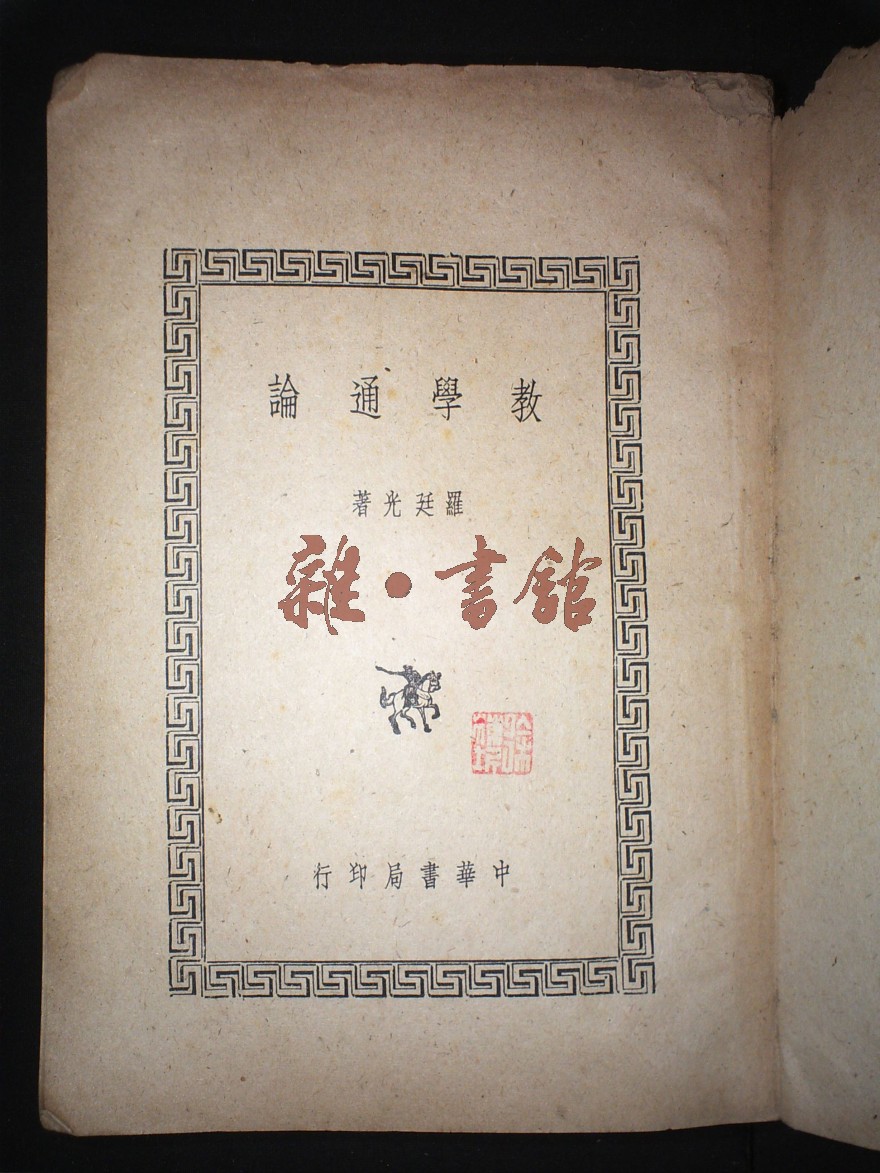 教學通論
羅廷光著
雜·書館
中華書局印行